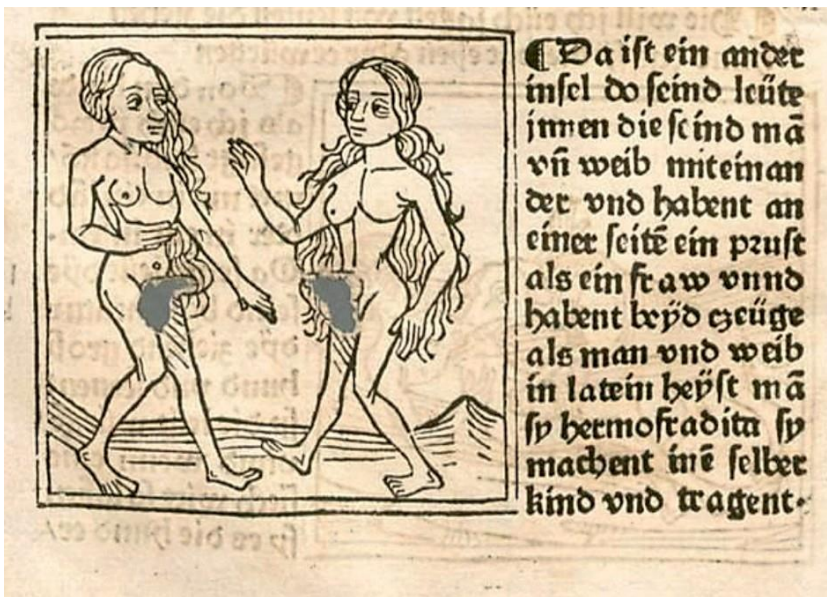 ¶ Da ist ein ander
insel do seind leüte
jnnen die seind mā
vñ weib miteinan
der vnd habent an
einer seitē ein prust
als ein fraw vnnd
habent beÿd czeüge
als man vnd weib
in latein heÿst mā
sy hermofradita sy
machent inē selber
kind vnd tragent·